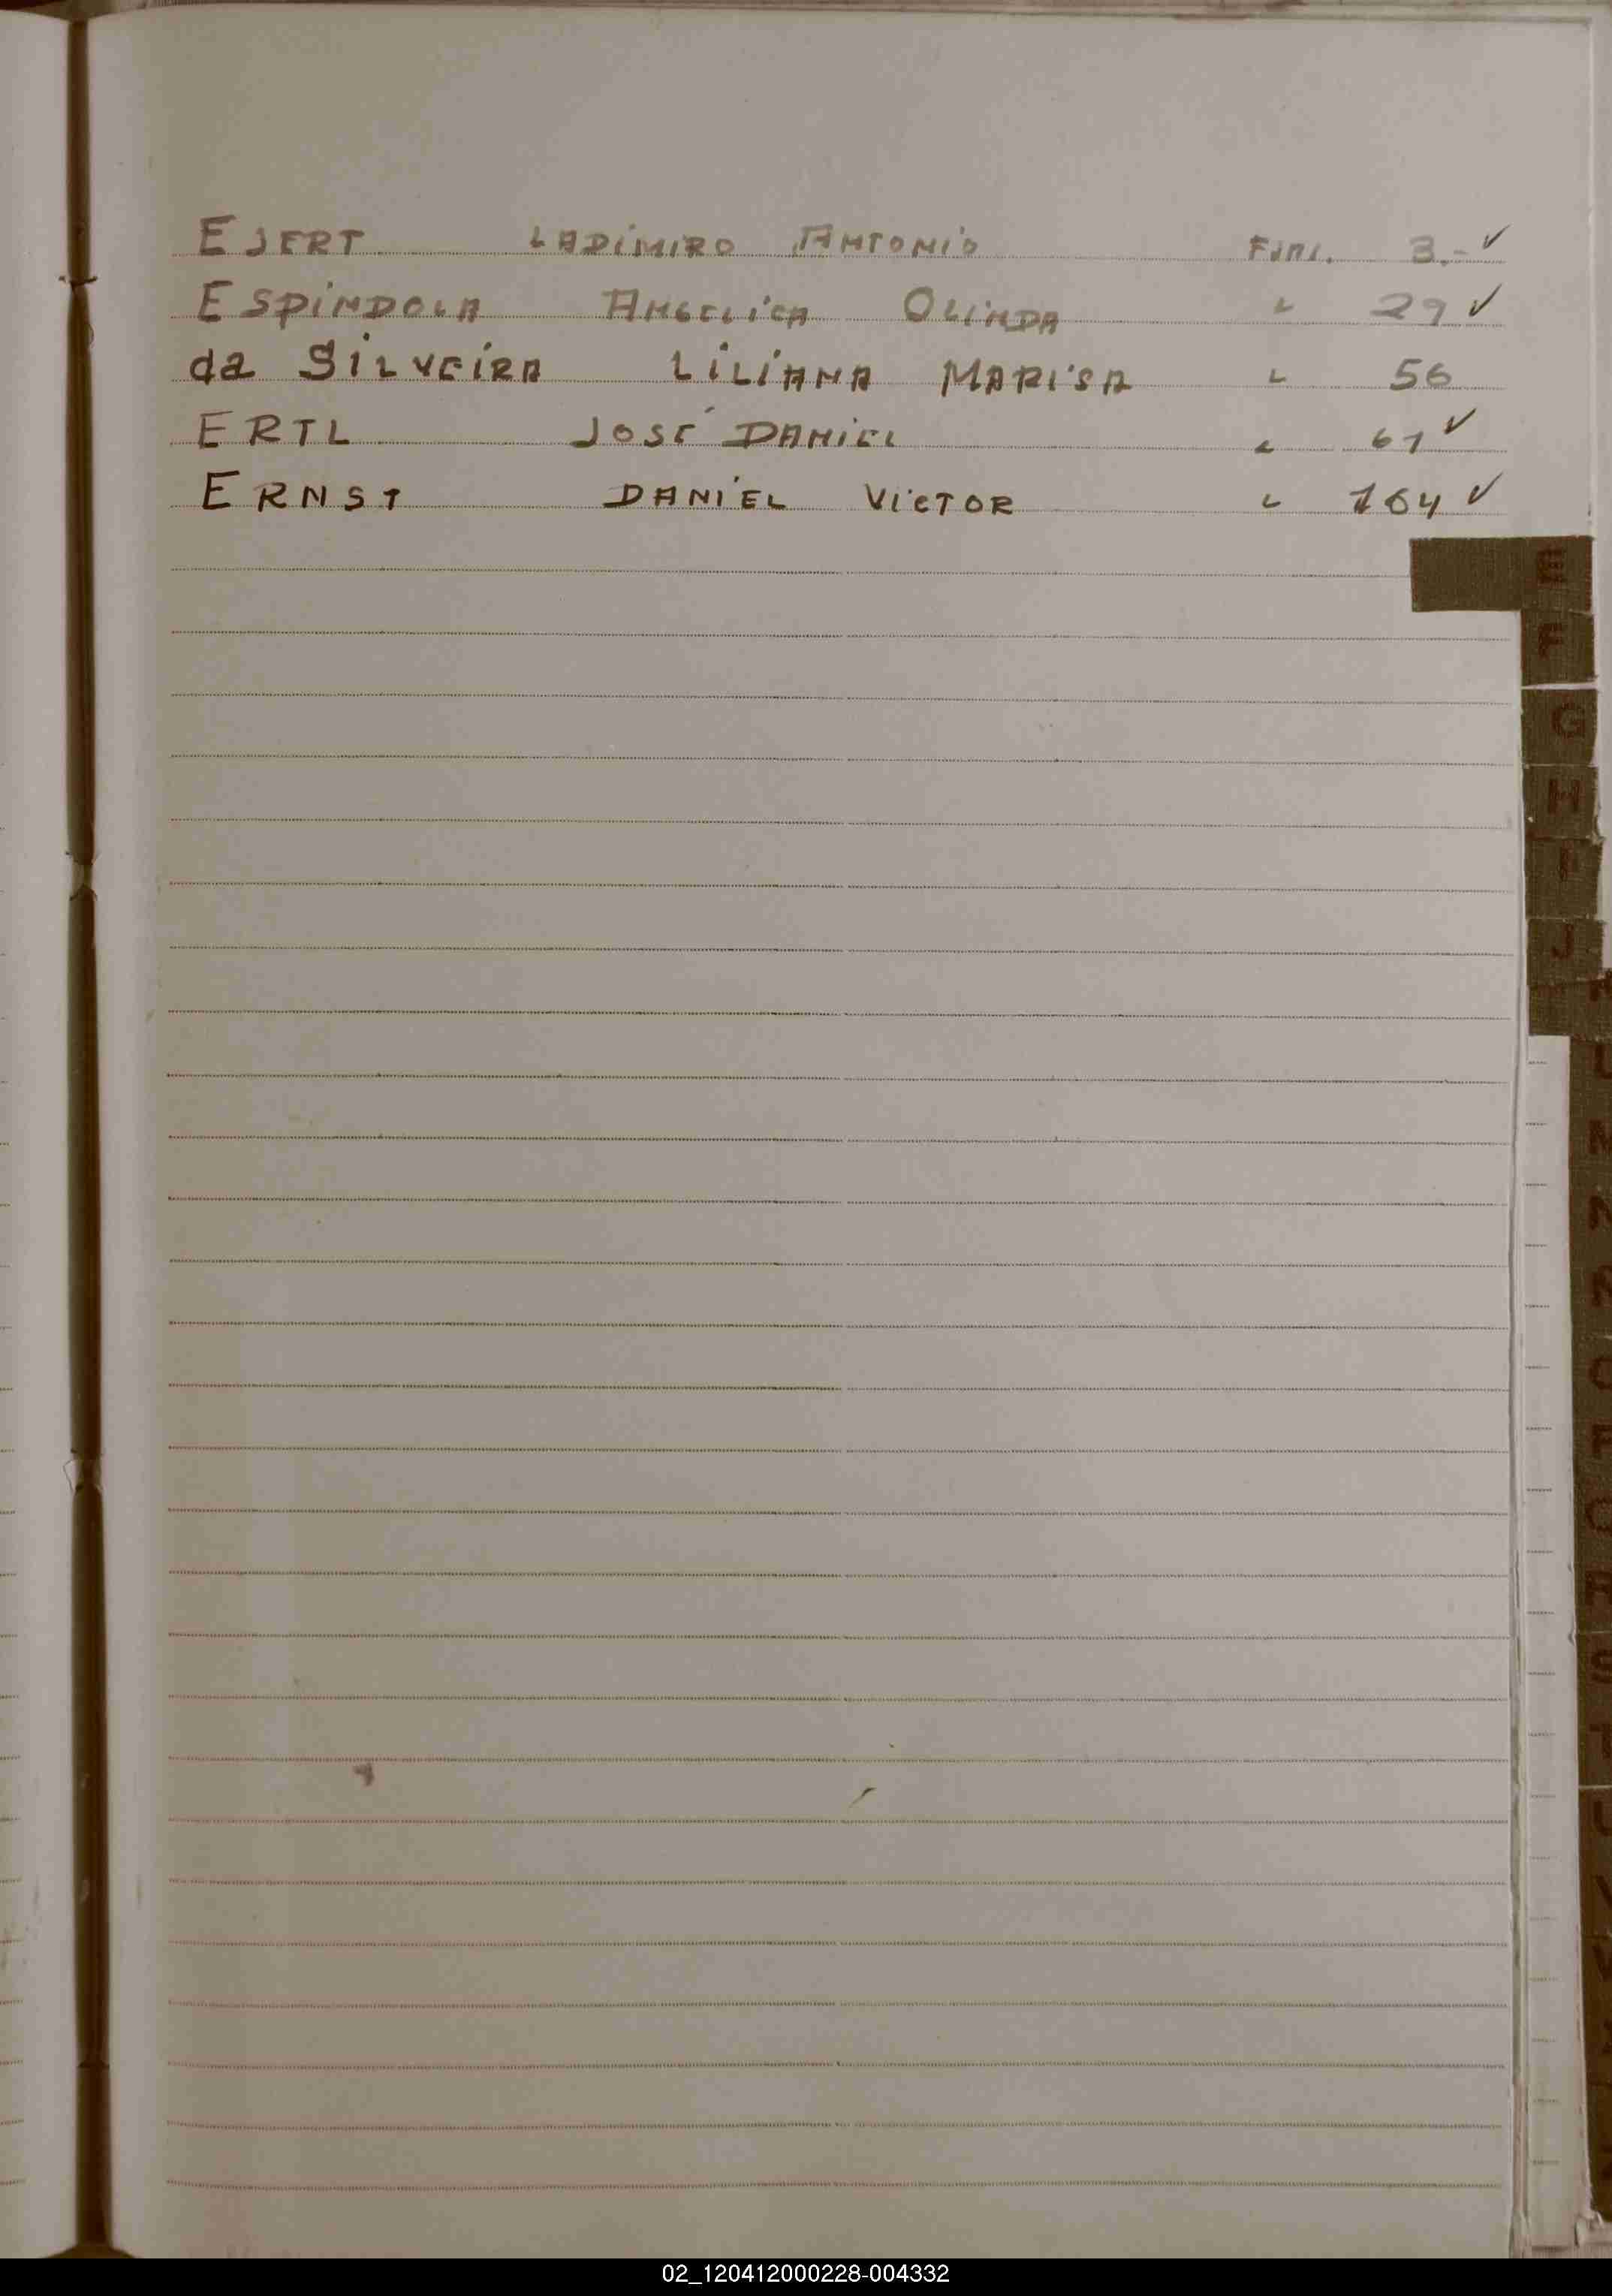 EJERT LADIMIRO ANTONIO Fini. 3.- ✓
ESPINDOLA ANGELICA OLINDA " 29 ✓
da SILVEIRA LILIANA MARISA " 56
ERTL JOSÉ DANIEL " 61 ✓
ERNST DANIEL VICTOR " 164 ✓
E
F
G
H
I
J
M
N
S
T
02_120412000228-004332